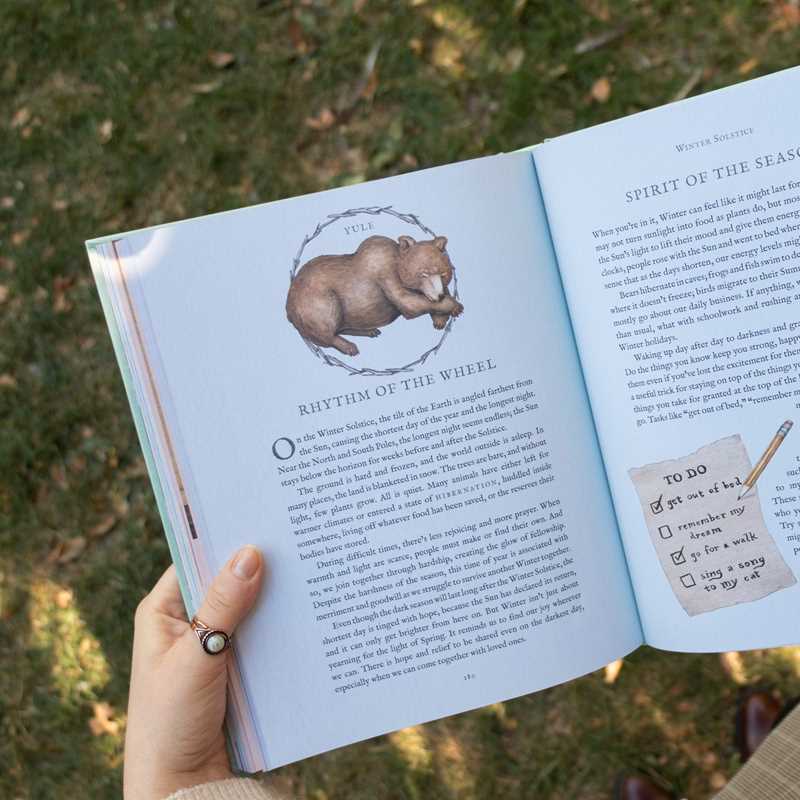 YULE
RHYTHM OF THE WHEEL
On the Winter Solstice, the tilt of the Earth is angled farthest from
the Sun, causing the shortest day of the year and the longest night.
Near the North and South Poles, the longest night seems endless; the Sun
stays below the horizon for weeks before and after the Solstice.
The ground is hard and frozen, and the world outside is asleep. In
many places, the land is blanketed in snow. The trees are bare, and without
light, few plants grow. All is quiet. Many animals have either left for
warmer climates or entered a state of HIBERNATION, huddled inside
somewhere, living off whatever food has been saved, or the reserves their
bodies have stored.
During difficult times, there's less rejoicing and more prayer. When
warmth and light are scarce, people must make or find their own. And
so, we join together through hardship, creating the glow of fellowship.
Despite the harshness of the season, this time of year is associated with
merriment and goodwill as we struggle to survive another Winter together.
Even though the dark season will last long after the Winter Solstice, the
shortest day is tinged with hope, because the Sun has declared its return,
and it can only get brighter from here on. But Winter isn't just about
yearning for the light of Spring. It reminds us to find our joy wherever
we can. There is hope and relief to be shared even on the darkest day,
especially when we can come together with loved ones.
WINTER SOLSTICE
SPIRIT OF THE SEASO
When you're in it, Winter can feel like it might last for
may not turn sunlight into food as plants do, but mos
the Sun's light to lift their mood and give them energ
clocks, people rose with the Sun and went to bed when
sense that as the days shorten, our energy levels migh
Bears hibernate in caves; frogs and fish swim to de
where it doesn't freeze; birds migrate to their Summ
mostly go about our daily business. If anything, w
than usual, what with schoolwork and rushing a
Winter holidays.
Waking up day after day to darkness and gra
Do the things you know keep you strong, happ
them even if you've lost the excitement for them
a useful trick for staying on top of the things yo
things you take for granted at the top of the
go. Tasks like "get out of bed," "remember m
TO DO
get out of bed
remember my
dream
go for a walk
sing a song
to my cat
t
suc
to my
These
who yo
Try
mig
p